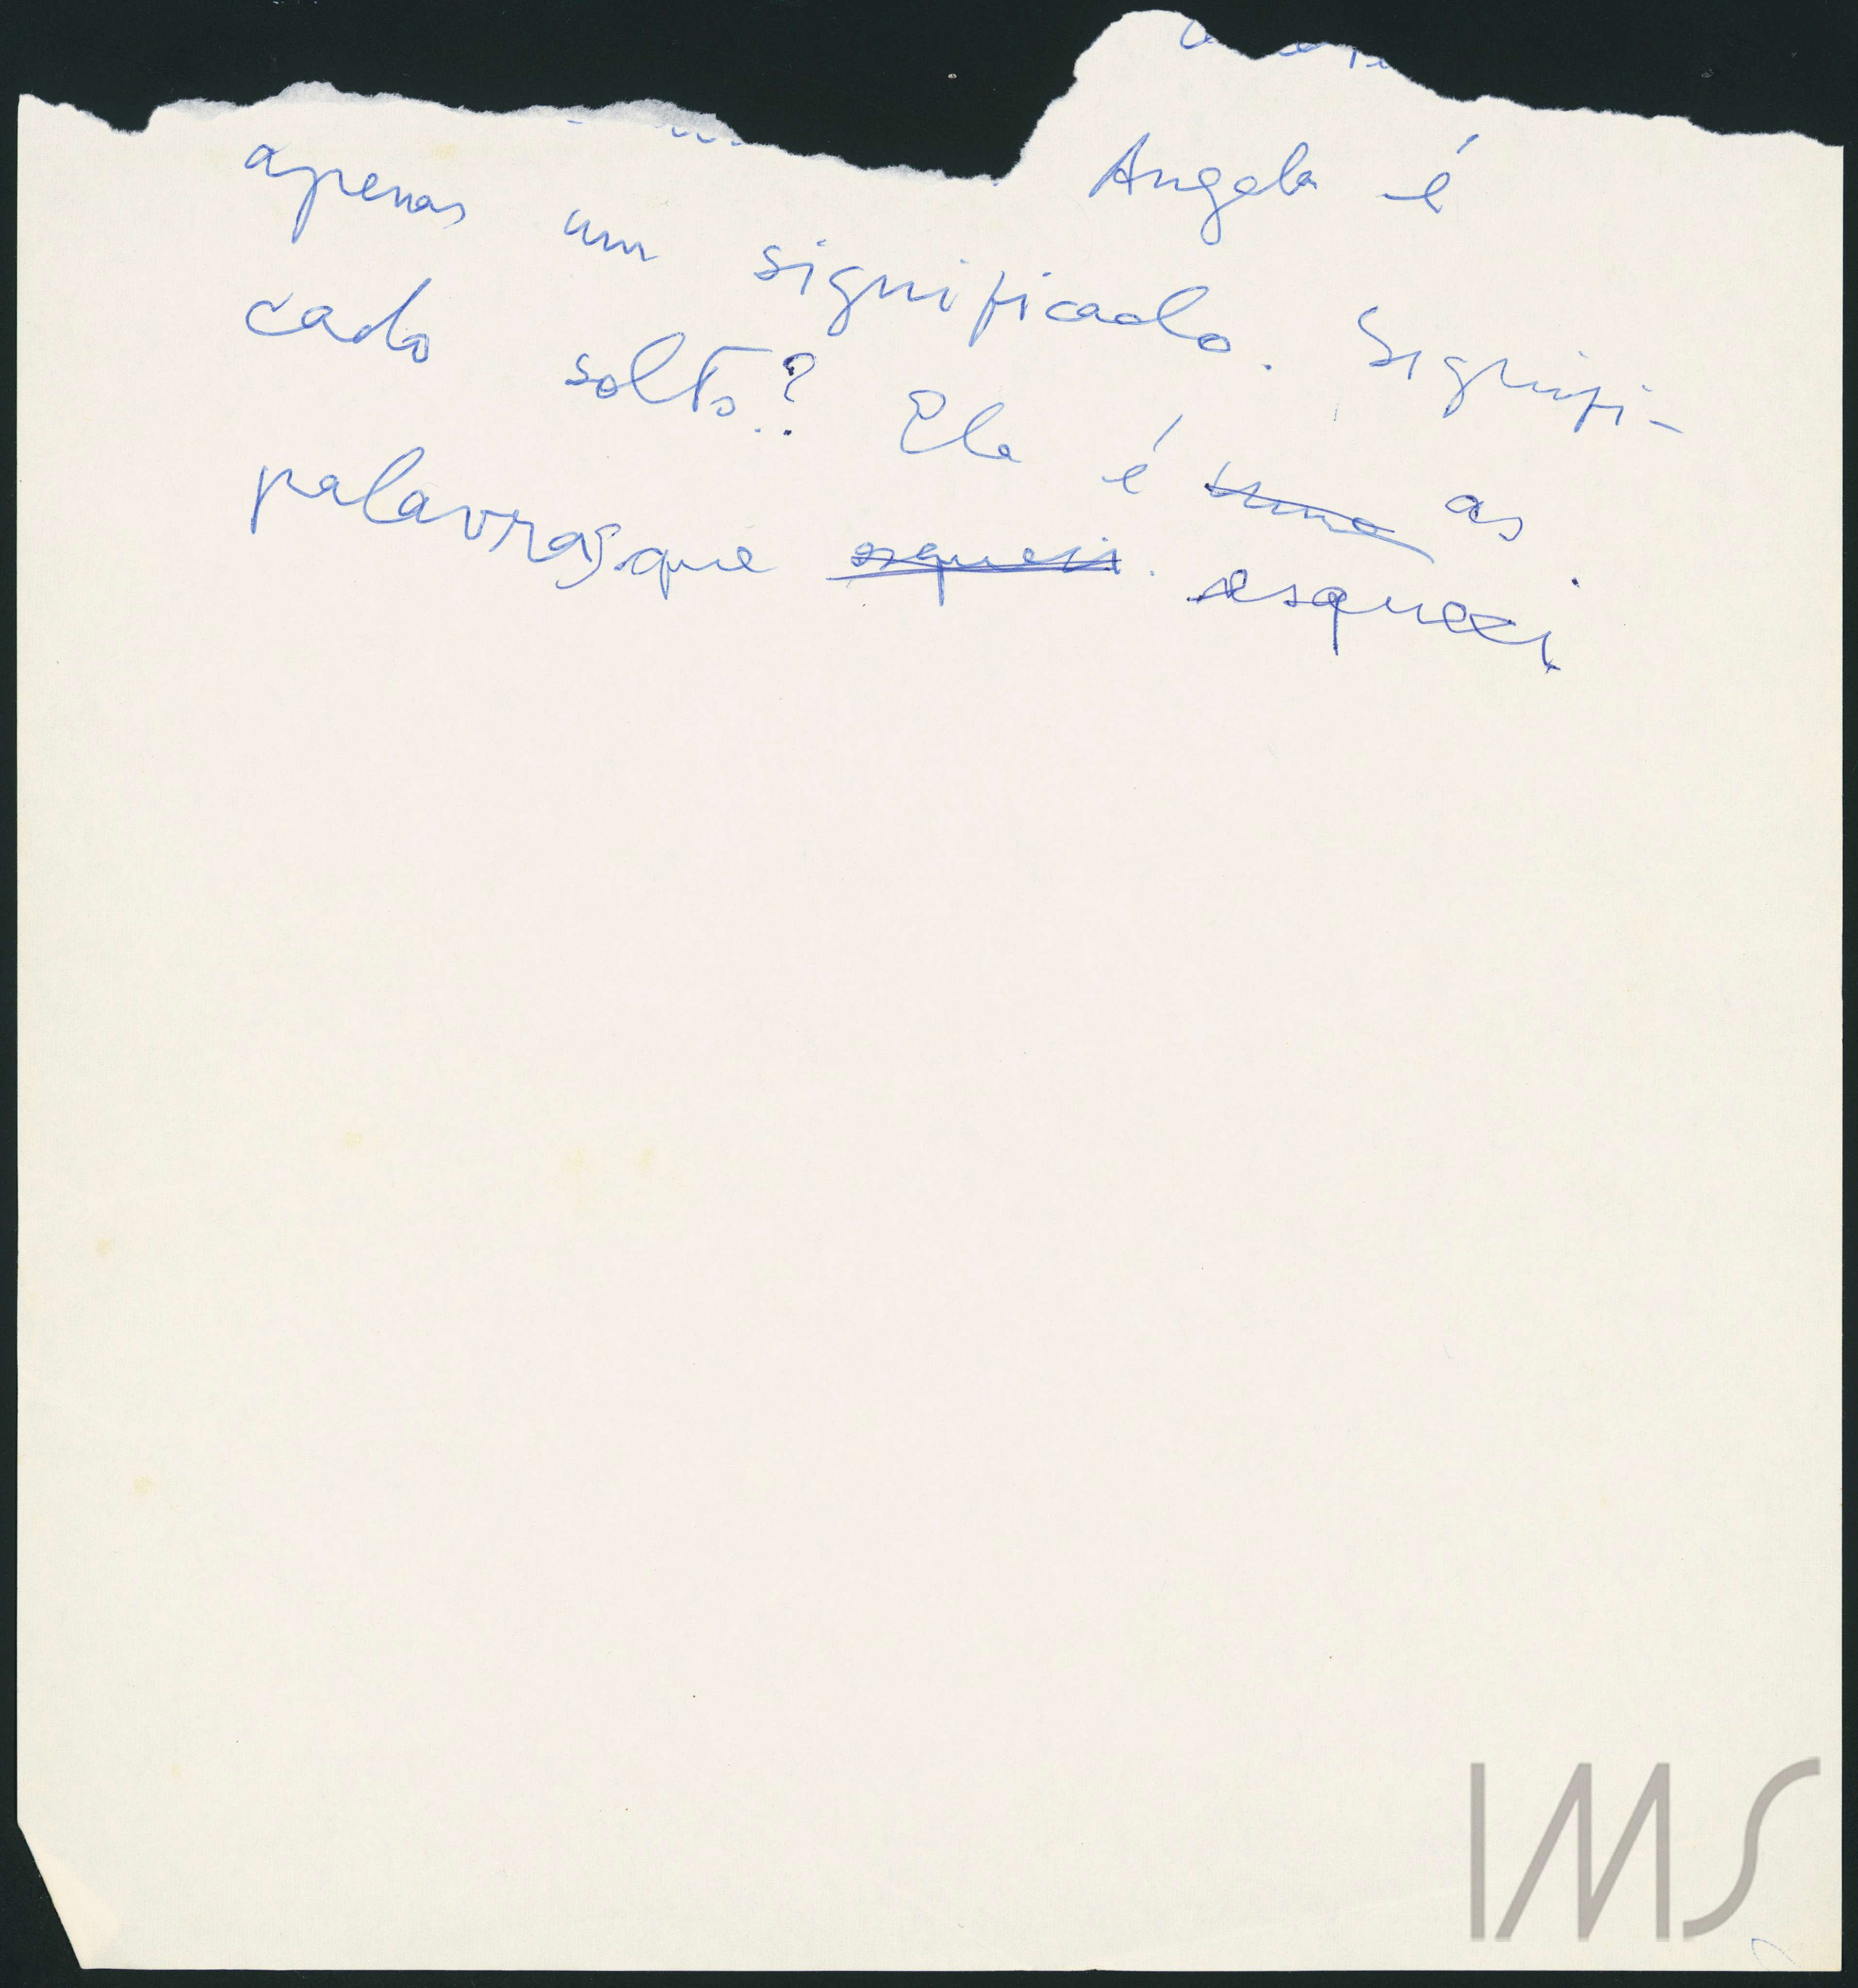 Angela é
apenas um significado. Signifi-
cado solto? Ela é uma as
palavras que esqueci. esqueci
IMS